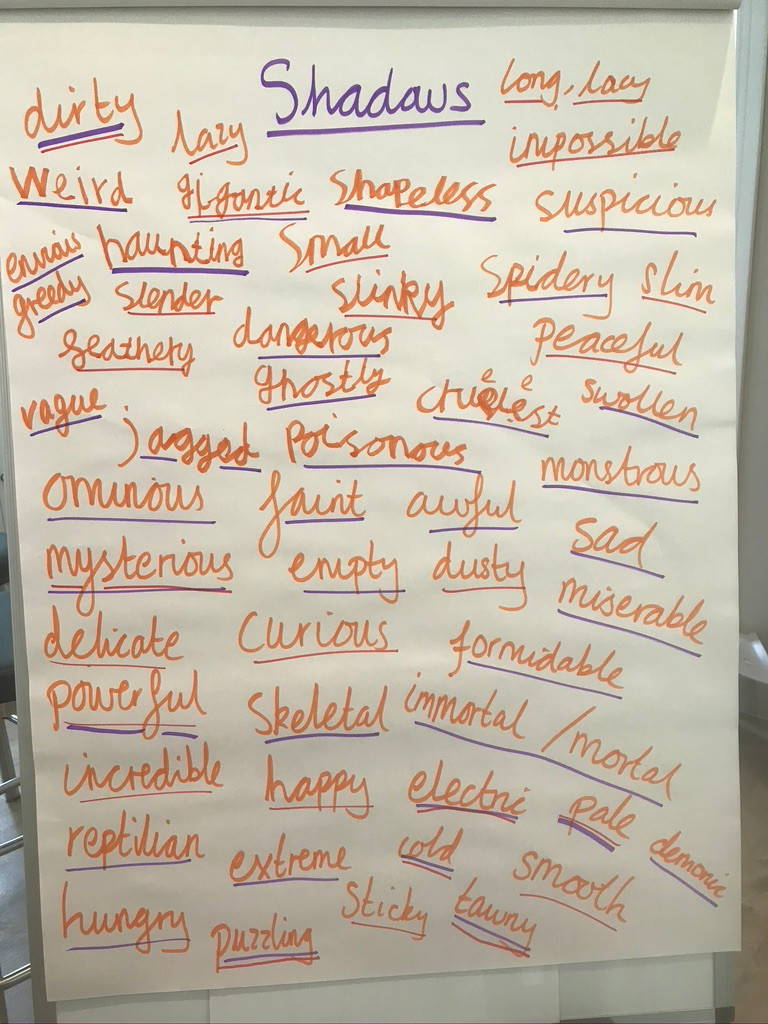 Shadows
long, lacy
dirty
lazy
impossible
Weird
gigantic
Shapeless
suspicious
envious
haunting
Small
greedy
Slender
Slinky
Spidery
slim
feathery
dangerous
Peaceful
ghostly
vague
cruelest
swollen
jagged
poisonous
monstrous
ominous
faint
awful
sad
mysterious
empty
dusty
miserable
delicate
Curious
formidable
powerful
Skeletal
immortal / mortal
incredible
happy
electric
pale
demonic
reptilian
extreme
cold
smooth
hungry
puzzling
Sticky
tawny